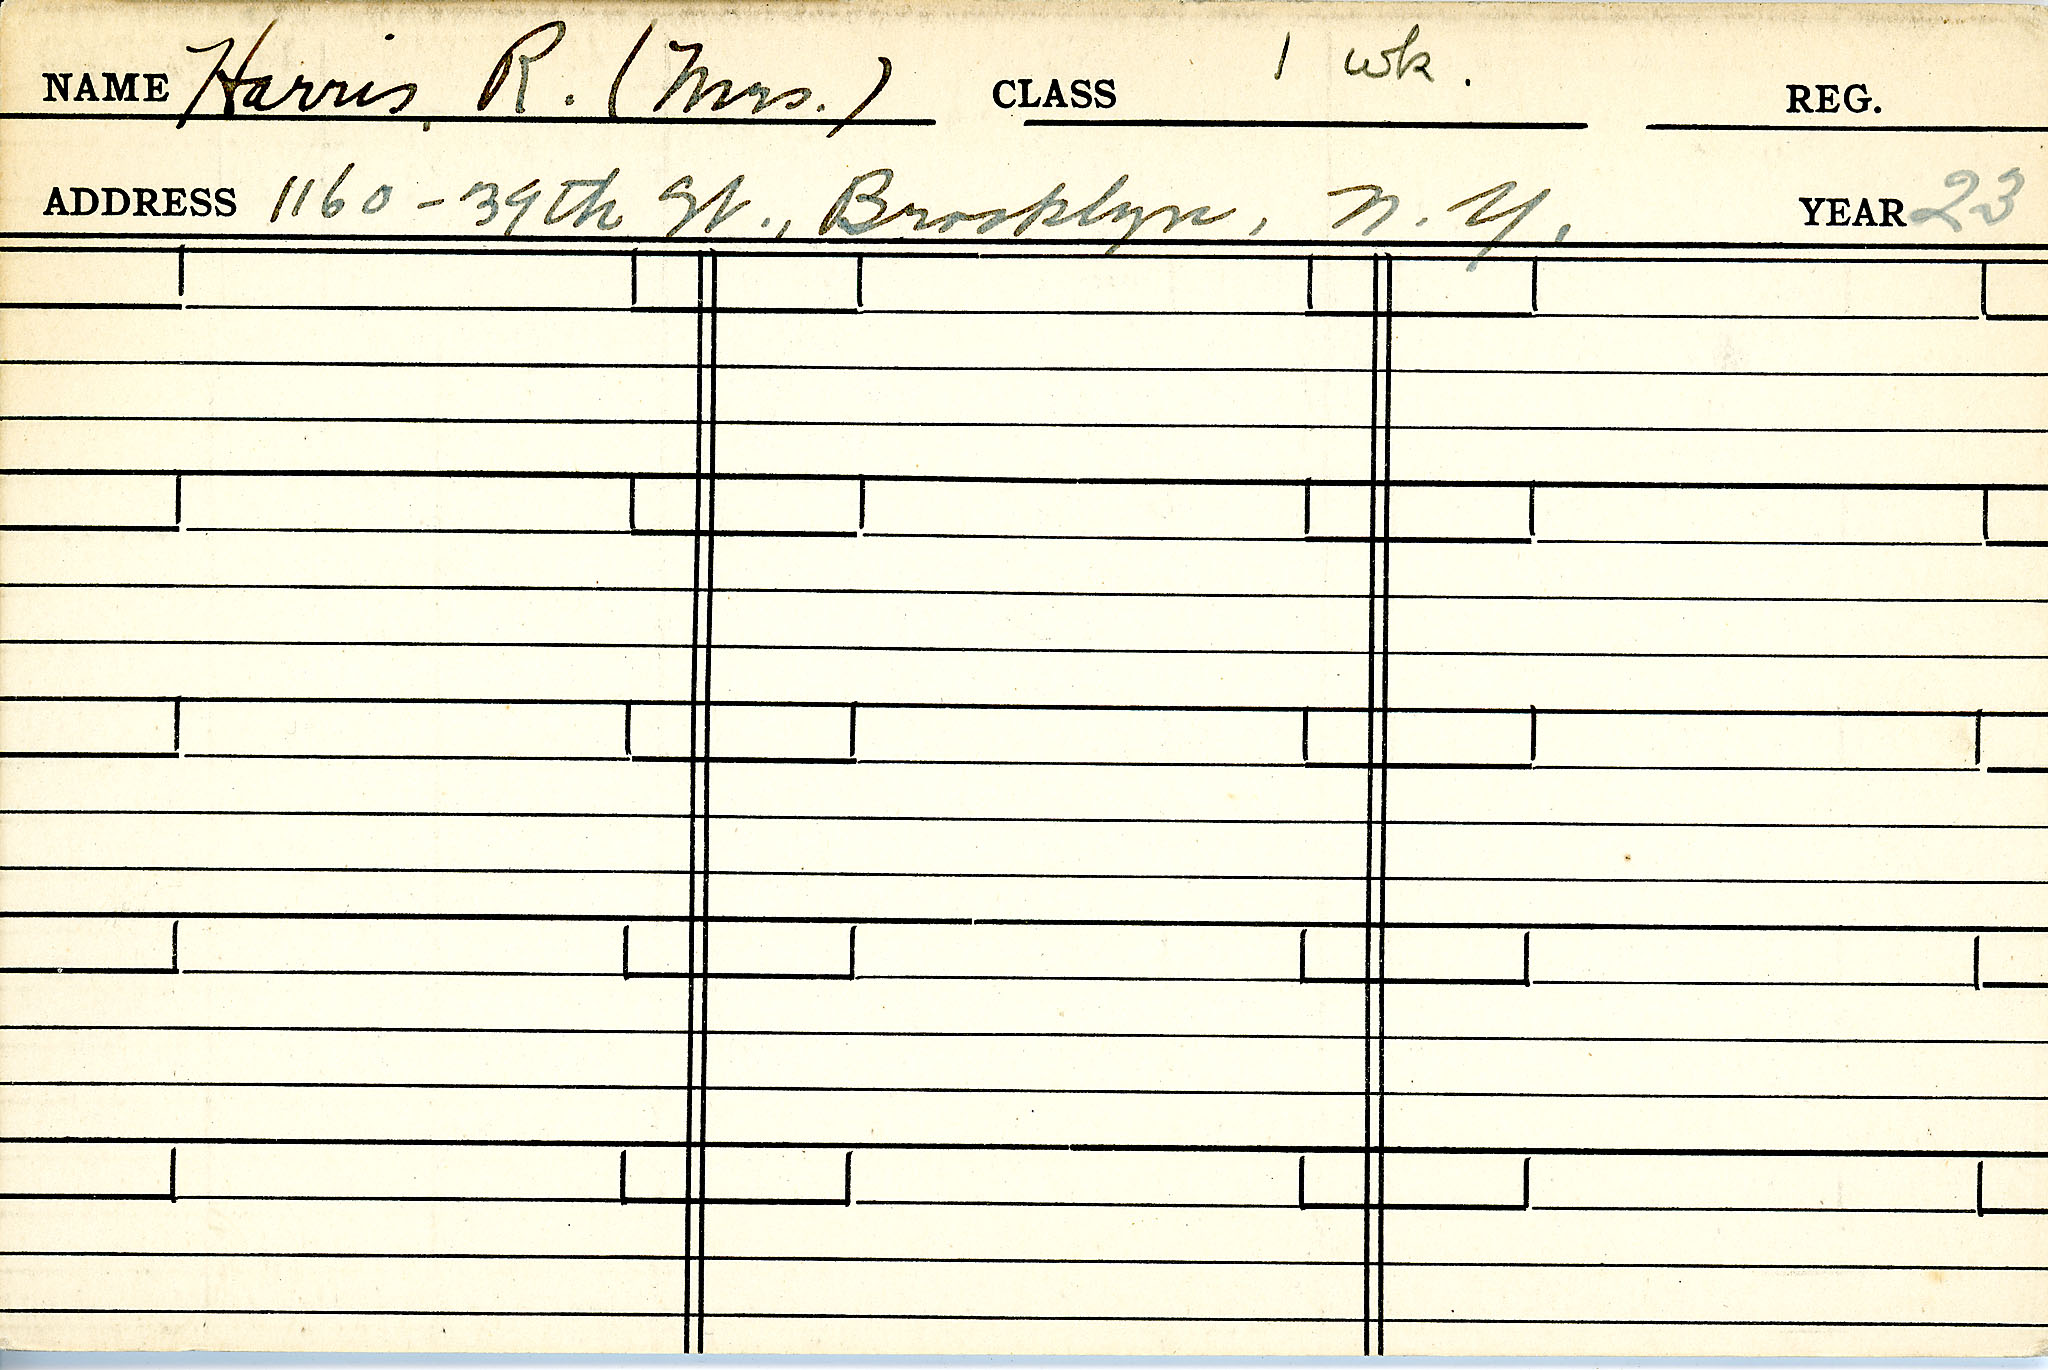 NAME Harris, R. (Mrs.) CLASS 1 wk. REG.
ADDRESS 1160 - 39th St., Brooklyn, N.Y. YEAR 23